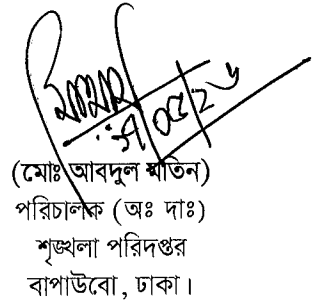 (মোঃ আবদুল মতিন)
পরিচালক (অঃ দাঃ)
শৃঙ্খলা পরিদপ্তর
বাপাউবো, ঢাকা।